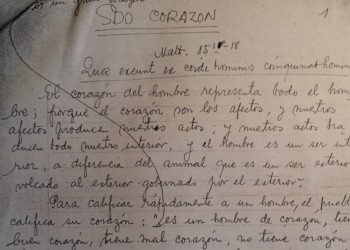 es un gran corazón
SDO CORAZON 1
Matt. 15 IV-18
Quae exeunt ex corde hominis coinquinat homin
El corazón del hombre representa todo el hom
bre; porque el corazón son los afectos, y nuestros
afectos produce nuestros actos; y nuestros actos tra
ducen todo nuestro interior, y el hombre es un ser inte
rior, a diferencia del animal que es un ser exterior
volcado al exterior gobernado por el exterior.
Para calificar rápidamente a un hombre, el pueblo
califica su corazón: "es un hombre de corazón, tiene
buen corazón, tiene mal corazón, no tiene corazón